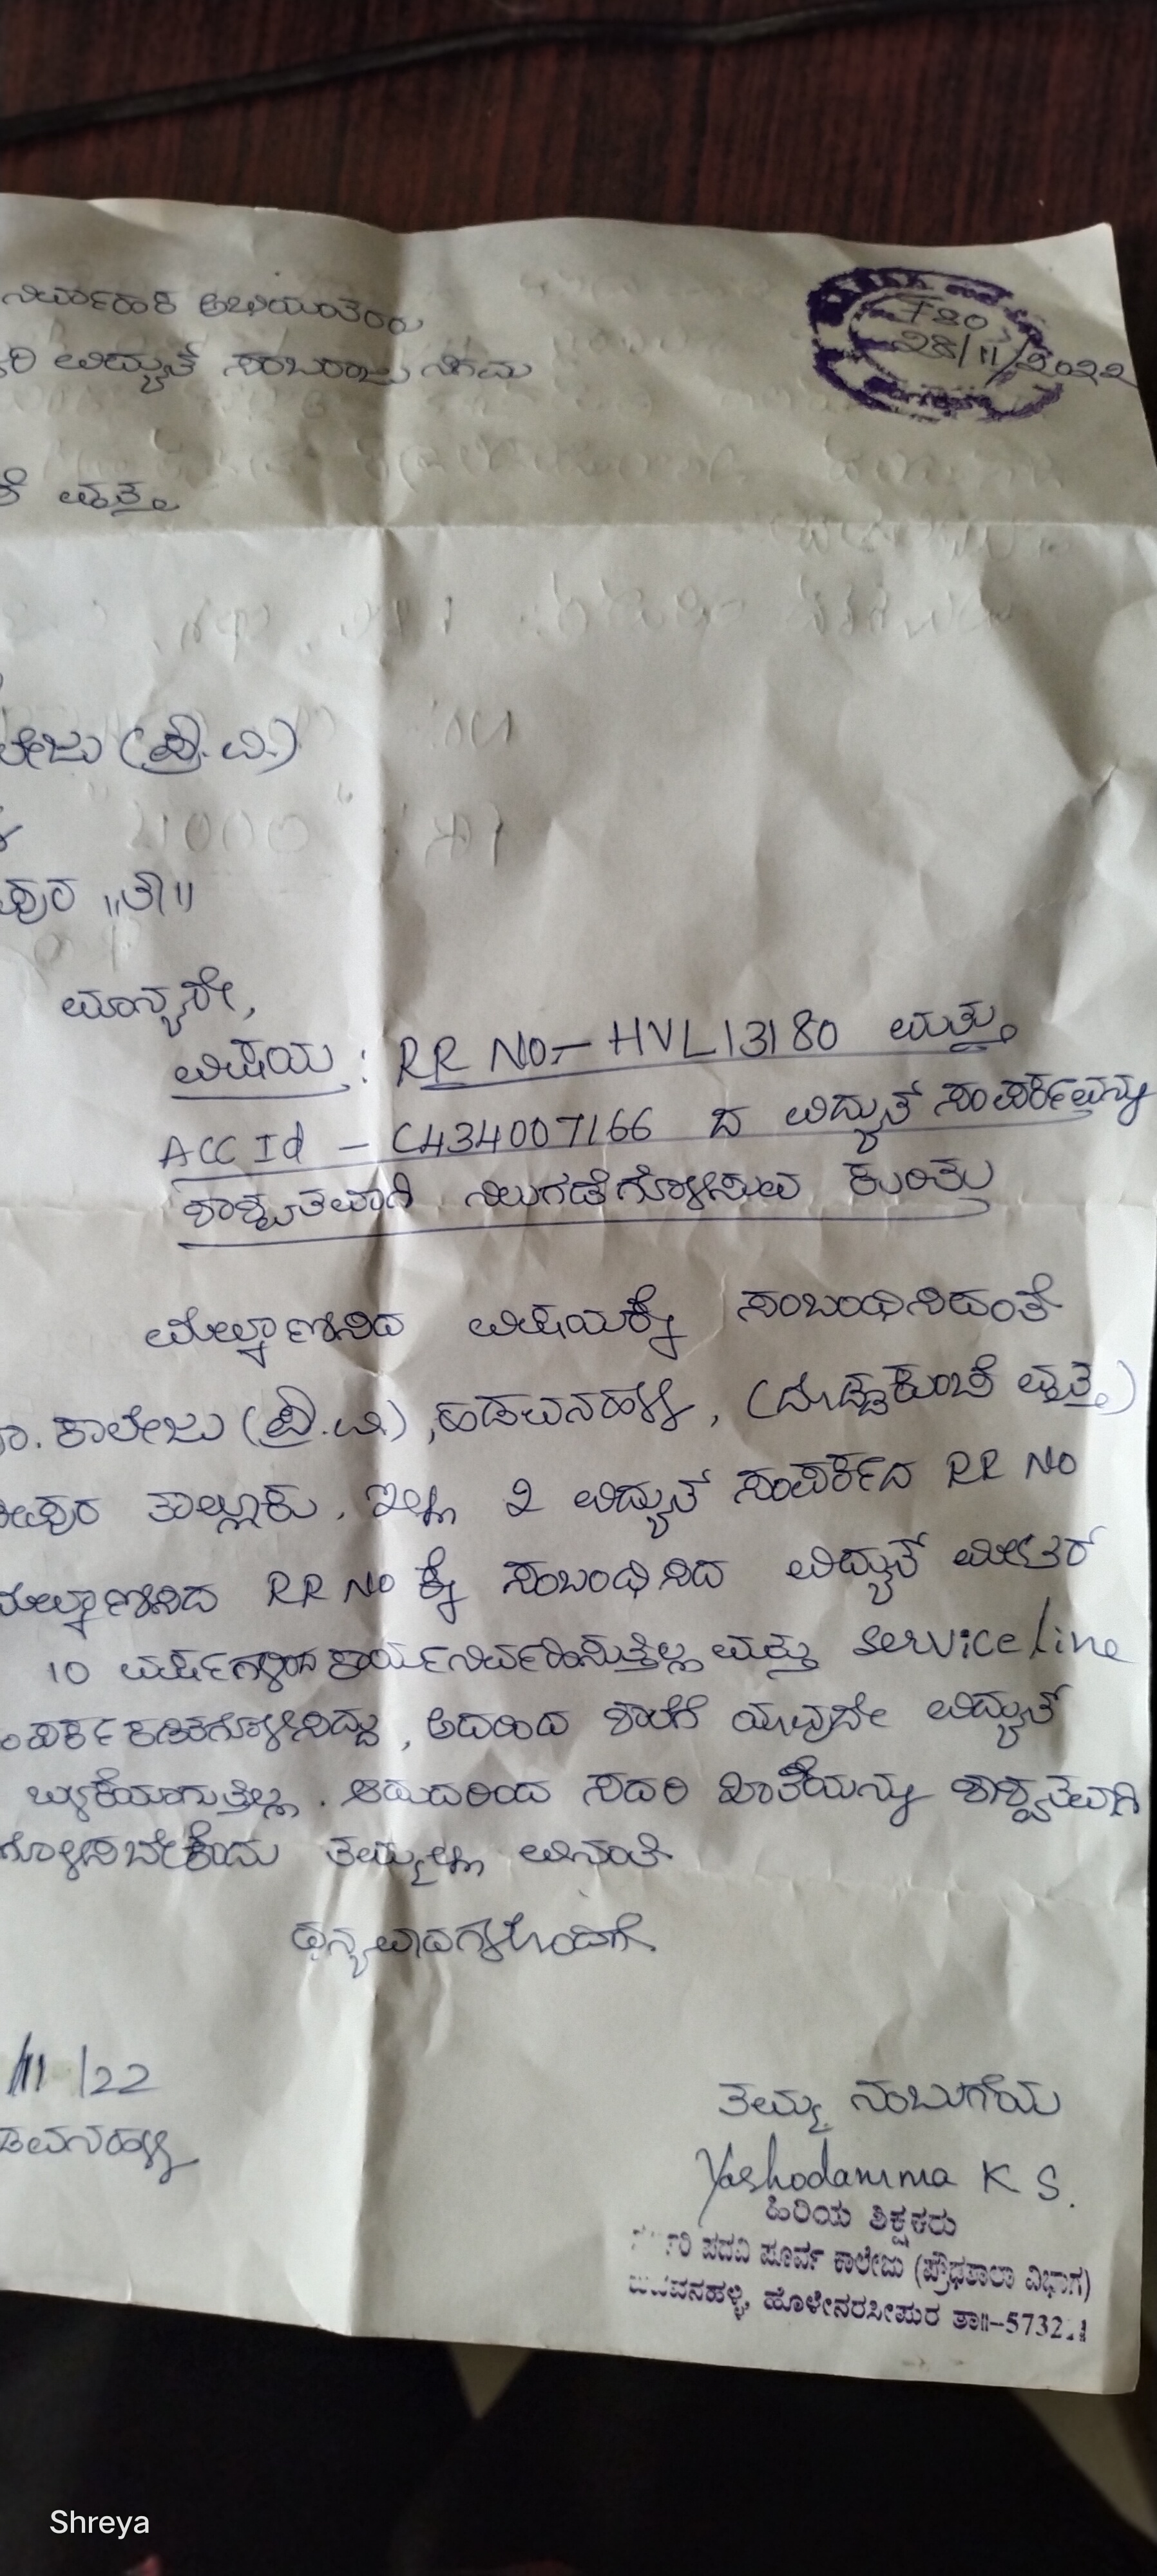 ನಿರ್ವಾಹಕ ಅಭಿಯಂತರರು
ವಿದ್ಯುತ್ ಸರಬರಾಜು ನಿಗಮ
780
28/11/2022
ವೃತ್ತ
ಲೇಜು (ಪ್ರೌ.ವಿ.)
ಪುರ ॥ತಾ॥
ಮಾನ್ಯರೇ,
ವಿಷಯ : RR NO:- HVL13180 ಮತ್ತು
ACC Id - C434007166 ದ ವಿದ್ಯುತ್ ಸಂಪರ್ಕವನ್ನು
ಶಾಶ್ವತವಾಗಿ ನಿಲುಗಡೆಗೊಳಿಸುವ ಕುರಿತು
ಮೇಲ್ಕಾಣಿಸಿದ ವಿಷಯಕ್ಕೆ ಸಂಬಂಧಿಸಿದಂತೆ
ಕಾಲೇಜು (ಪ್ರೌ.ವಿ), ಹಡವನಹಳ್ಳಿ, (ದೊಡ್ಡಕುಂಚೆ ವೃತ್ತ)
ಪುರ ತಾಲ್ಲೂಕು. ಇಲ್ಲಿ 2 ವಿದ್ಯುತ್ ಸಂಪರ್ಕದ RR NO
ಮೇಲ್ಕಾಣಿಸಿದ RR NO ಕ್ಕೆ ಸಂಬಂಧಿಸಿದ ವಿದ್ಯುತ್ ಮೀಟರ್
10 ವರ್ಷಗಳಿಂದ ಕಾರ್ಯನಿರ್ವಹಿಸುತ್ತಿಲ್ಲ ಮತ್ತು service line
ಸಂಪರ್ಕ ಕಡಿತಗೊಳಿಸಿದ್ದು, ಅದರಿಂದ ಶಾಲೆಗೆ ಯಾವುದೇ ವಿದ್ಯುತ್
ಬಳಕೆಯಾಗುತ್ತಿಲ್ಲ. ಆದುದರಿಂದ ಸದರಿ ಖಾತೆಯನ್ನು ಶಾಶ್ವತವಾಗಿ
ಗೊಳಿಸಬೇಕೆಂದು ತಮ್ಮಲ್ಲಿ ವಿನಂತಿ
ಧನ್ಯವಾದಗಳೊಂದಿಗೆ
/11/22
ಡವನಹಳ್ಳಿ
ತಮ್ಮ ನಂಬುಗೆಯ
Yashodamma K S.
ಹಿರಿಯ ಶಿಕ್ಷಕರು
ಪದವಿ ಪೂರ್ವ ಕಾಲೇಜು (ಪ್ರೌಢಶಾಲಾ ವಿಭಾಗ)
ಹಡವನಹಳ್ಳಿ, ಹೊಳೇನರಸೀಪುರ ತಾ॥-5732
Shreya